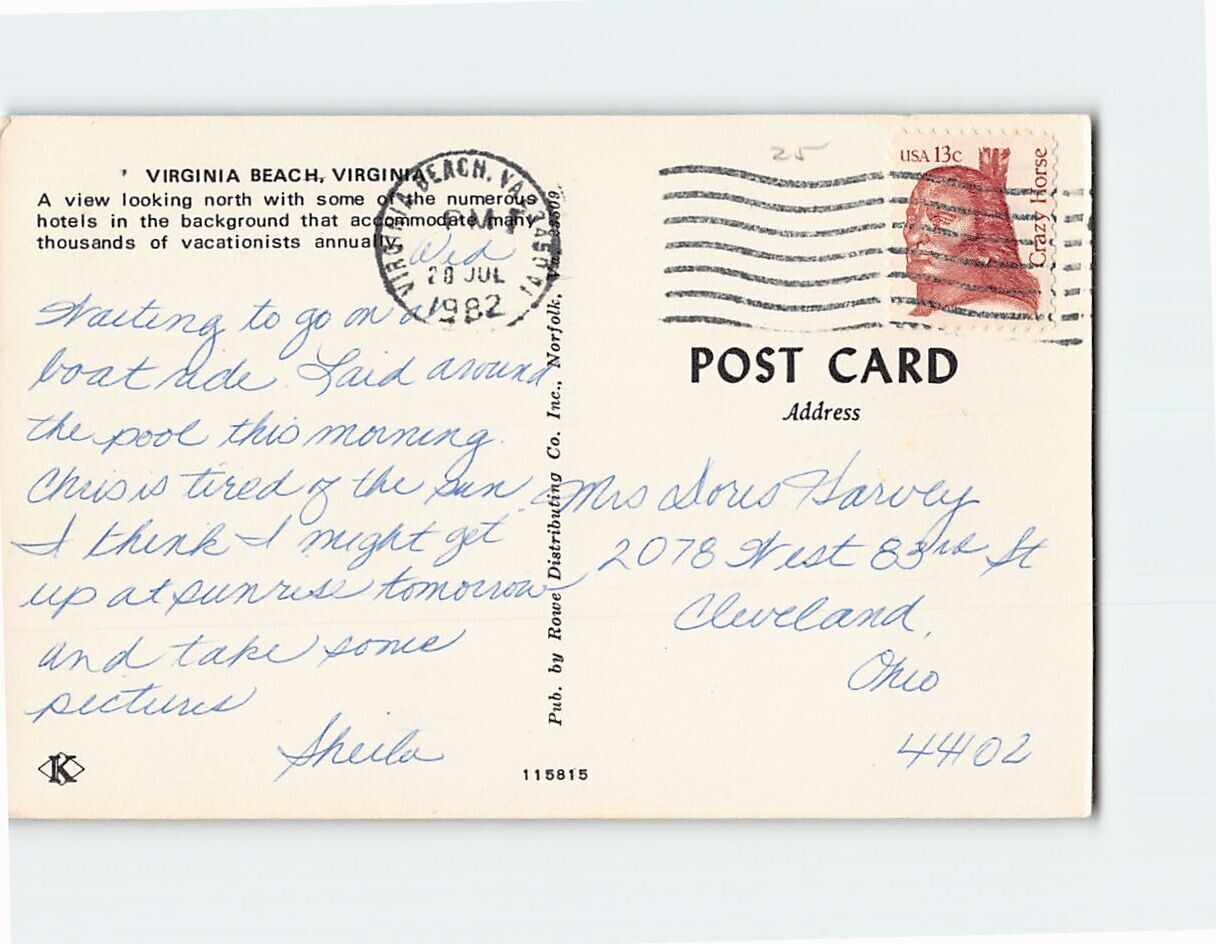 VIRGINIA BEACH, VIRGINIA
A view looking north with some of the numerous
hotels in the background that accommodate many
thousands of vacationists annually.
VIRGINIA BEACH, VA
PM
28 JUL
1982
Wed
Waiting to go on a
boat ride. Laid around
the pool this morning.
Chris is tired of the sun
I think I might get
up at sunrise tomorrow
and take some
pictures
Sheila
K
Pub. by Rowe Distributing Co. Inc., Norfolk,
115815
25
USA 13c
Crazy Horse
POST CARD
Address
Mrs Doris Harvey
2078 West 83rd St
Cleveland,
Ohio
44102